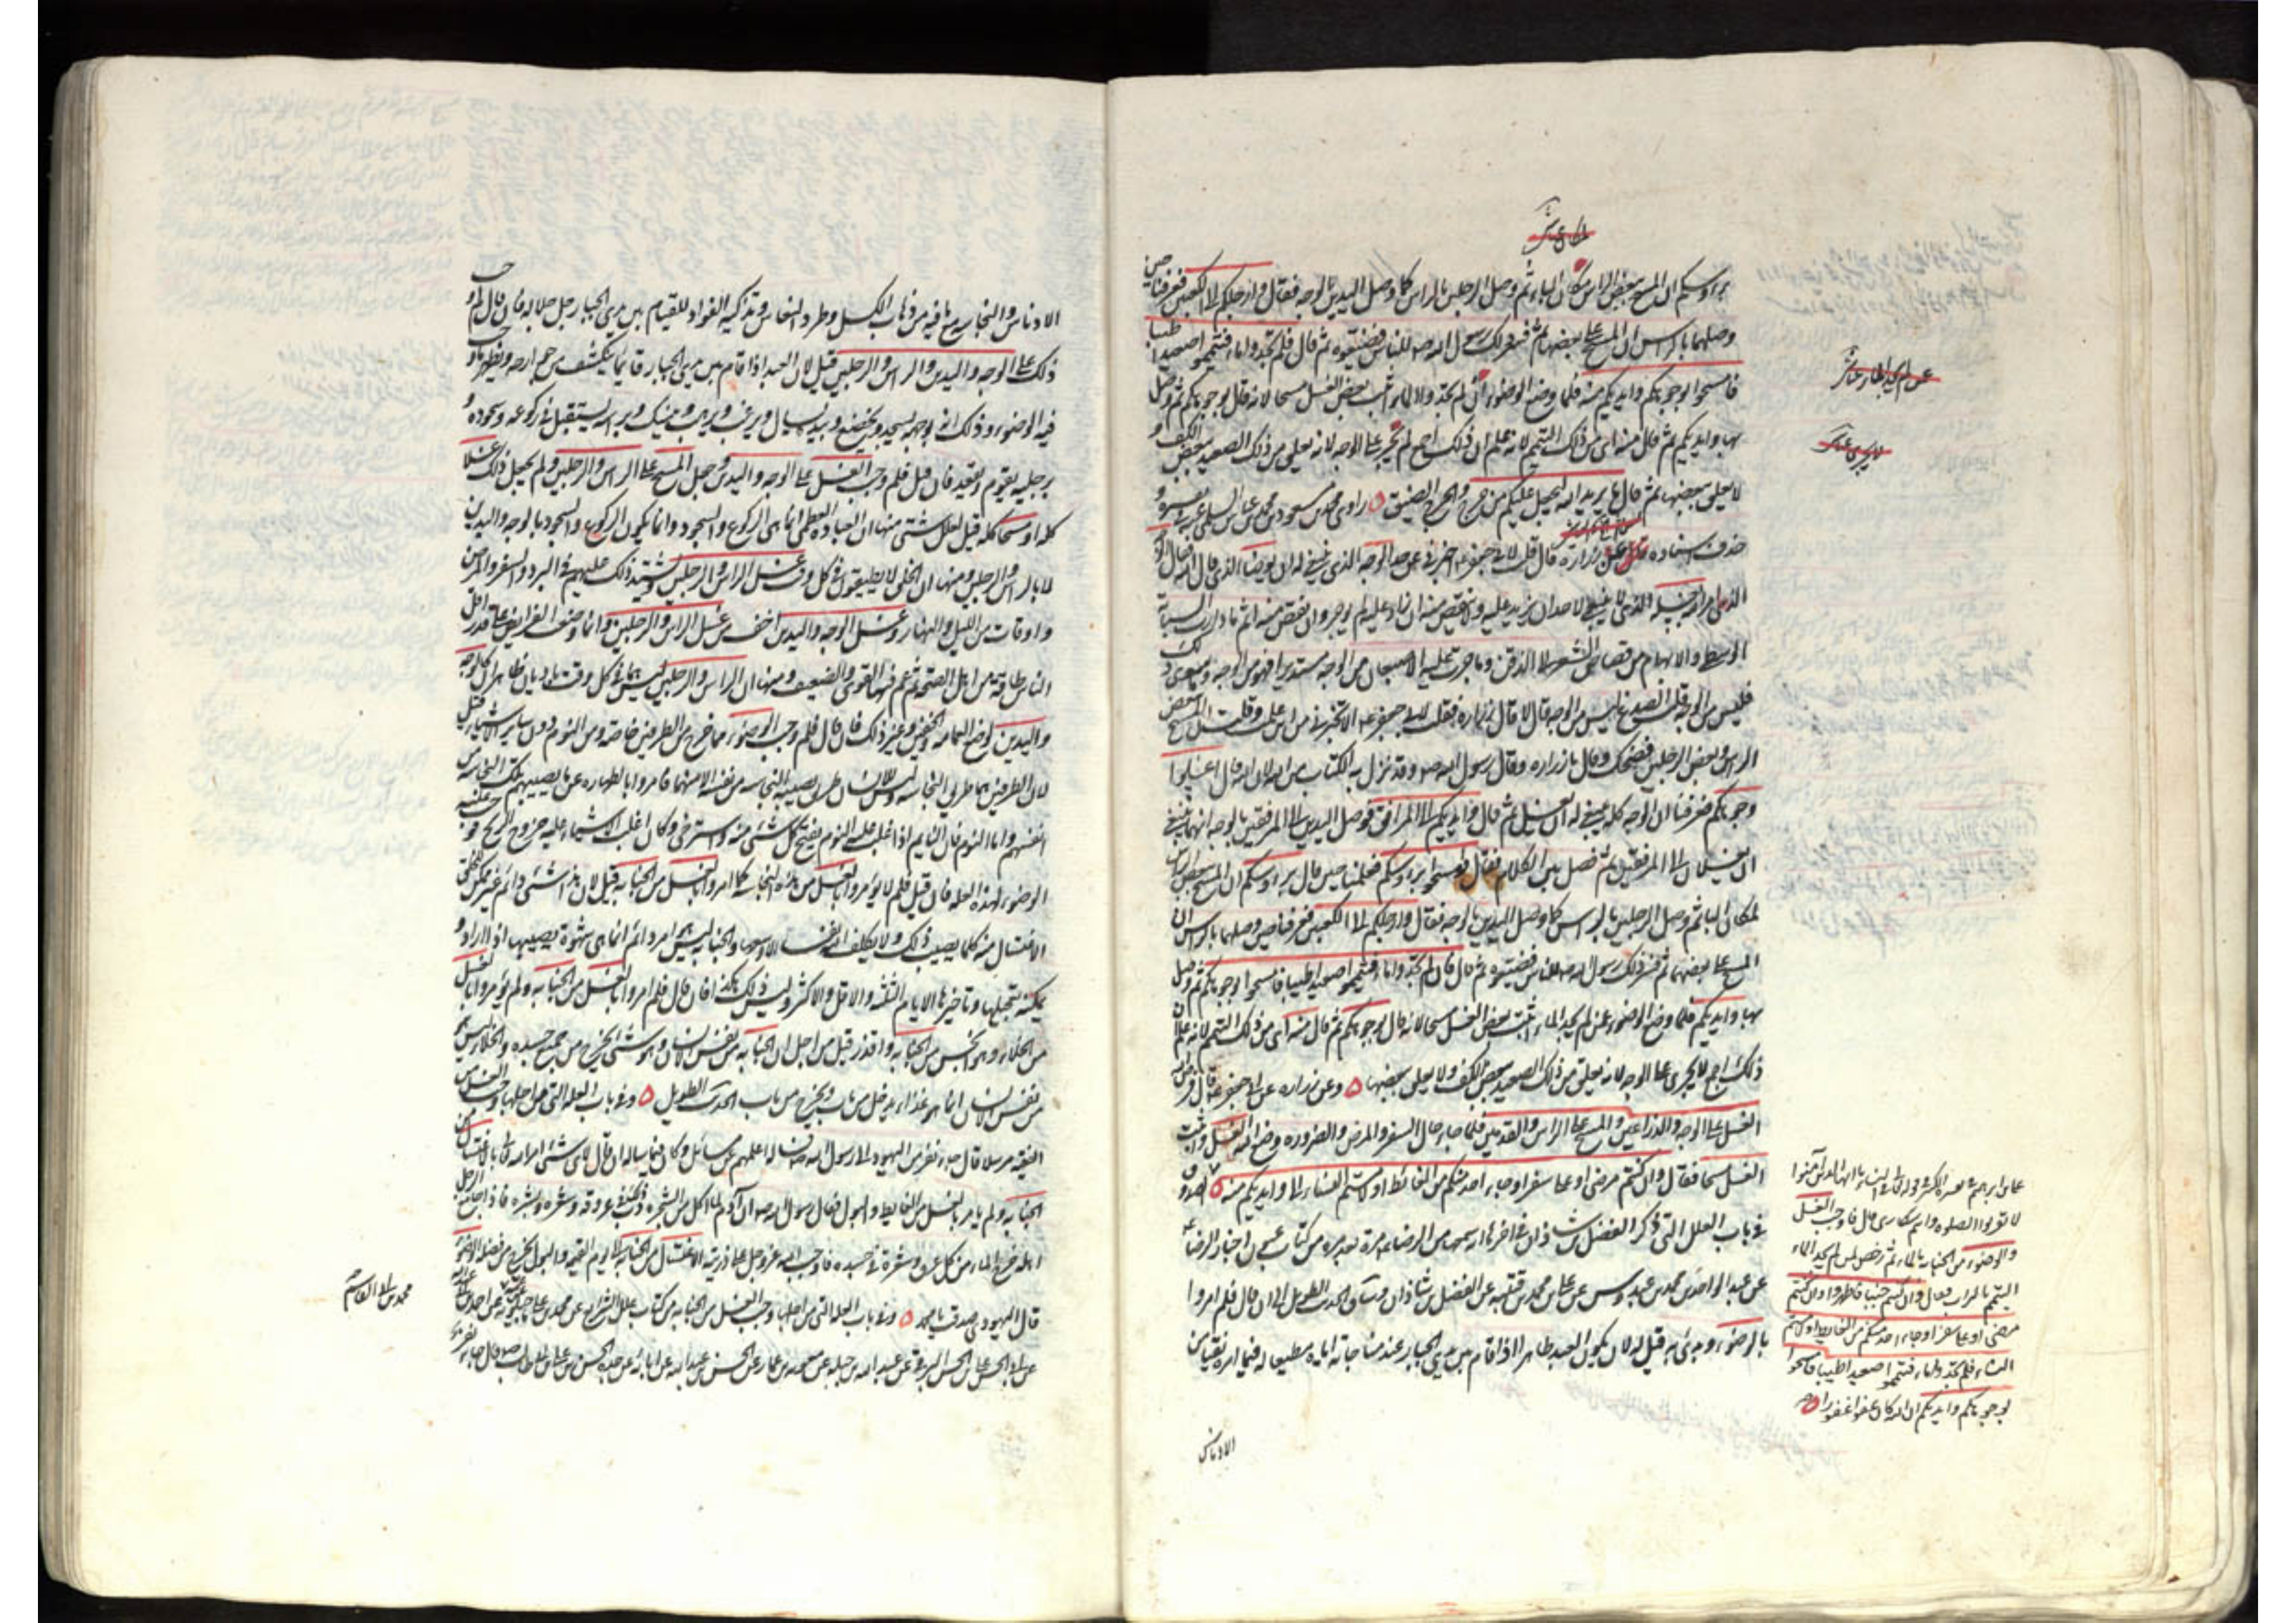 برءوسكم ان المسح ببعض الراس لمكان الباء ثم وصل الرجلين بالراس كما وصل اليدين بالوجه فقال وارجلكم الى الكعبين فعرفنا حين
وصلهما بالراس ان المسح على بعضها ثم فسر ذلك رسول الله صه للناس فضيعوه ثم قال فلم تجدوا ماء فتيمموا صعيدا طيبا
فامسحوا بوجوهكم وايديكم منه فلما وضع الوضوء ان لم تجدوا الماء اثبت بعض الغسل مسحا لانه قال بوجوهكم ثم وصل
بها وايديكم ثم قال منه اى من ذلك التيمم لانه علم ان ذلك اجمع لم يجر على الوجه لانه يعلق من ذلك الصعيد ببعض الكف و
لا يعلق ببعضها ثم قال ما يريد الله ليجعل عليكم من حرج والحرج الضيق ٥ راوى محمد بن مسعود بن محمد بن عياش السلمى
حذف اسناده عن زرارة قال قلت لابى جعفر ع اخبرنى عن حد الوجه الذى ينبغى له ان يوضأ الذى قال الله فقال الوجه
الذى امر الله بغسله الذى لا ينبغى لاحد ان يزيد عليه ولا ينقص منه ان زاد عليه لم يوجر وان نقص منه اثم ما دارت السبابة
الوسطى والابهام من قصاص الشعر الى الذقن وما جرت عليه الاصبعان من الوجه مستديرا فهو من الوجه وما سوى ذلك
فليس من الوجه قلت الصدغ ليس من الوجه قال لا قال زرارة فقلت لابى جعفر ع الا تخبرنى من اين علمت وقلت ان المسح ببعض
الراس وبعض الرجلين فضحك وقال يا زرارة وقال رسول الله صه وقد نزل به الكتاب من الله لان الله قال اغسلوا
وجوهكم فعرفنا ان الوجه كله ينبغى له ان يغسل ثم قال وايديكم الى المرافق فوصل اليدين الى المرفقين بالوجه انهما ينبغى
ان يغسلا الى المرفقين ثم فصل بين الكلام فقال وامسحوا برءوسكم فعلمنا حين قال برءوسكم ان المسح ببعض الراس
لمكان الباء ثم وصل الرجلين بالراس كما وصل اليدين بالوجه فقال وارجلكم الى الكعبين فعرفنا حين وصلهما بالراس ان
المسح على بعضهما ثم فسر ذلك رسول الله صه للناس فضيعوه ثم قال فان لم تجدوا ماء فتيمموا صعيدا طيبا فامسحوا بوجوهكم ثم وصل
بها وايديكم فلما وضع الوضوء عن لم يجد الماء اثبت بعض الغسل مسحا لانه قال بوجوهكم ثم قال منه اى من ذلك التيمم لانه علم ان
ذلك اجمع لا يجرى على الوجه لانه يعلق من ذلك الصعيد ببعض الكف ولا يعلق ببعضها ٥ وعن زرارة عن ابى جعفر ع قال فرض
الغسل على الوجه والذراعين والمسح على الراس والقدمين فلما جاء حال السفر والمرض والضرورة وضع الله الغسل واثبت
الغسل مسحا فقال وان كنتم مرضى او على سفر او جاء احد منكم من الغائط او لامستم النساء الى وايديكم منه ٥
فى باب العلل التى ذكر الفضل بن شاذان فى اخرها انه سمعها من الرضا ع مرة بعد مرة من كتاب عيون اخبار الرضا
عن عبد الواحد بن محمد بن عبدوس عن على بن محمد بن قتيبه عن الفضل بن شاذان وساق الحديث الطويل الى ان قال فلم امروا
بالوضوء وبدئ به قيل له لان يكون العبد طاهرا اذا قام بين يدى الجبار عند مناجاته اياه مطيعا له فيما امره نقيا من
الادناس
على بن ابراهيم
لا تقربوا الصلوة وانتم سكارى قال فاوجب الغسل
والوضوء من الجنابة بالماء ثم رخص لمن لم يجد الماء
التيمم بالتراب فقال وان كنتم جنبا فاطهروا وان كنتم
مرضى او على سفر او جاء احد منكم من الغايط او لامستم
النساء فلم تجدوا ماء فتيمموا صعيدا طيبا فامسحوا
بوجوهكم وايديكم ان الله كان عفوا غفورا
الادناس والنجاسه مع ما فيه من ذهاب الكسل وطرد النعاس وتذكية الفؤاد للقيام بين يدى الجبار جل جلاله فان قال لم وجب
ذلك على الوجه واليدين والراس والرجلين قيل لان العبد اذا قام بين يدى الجبار قائما ينكشف من جوارحه ويظهر ما وجب
فيه الوضوء وذلك انه بوجهه يسجد ويخضع وبيده يسال ويرغب ويرهب ويتبتل وبراسه يستقبل فى ركوعه وسجوده و
برجليه يقوم ويقعد فان قيل فلم وجب الغسل على الوجه واليدين وجعل المسح على الراس والرجلين ولم يجعل ذلك غسلا
كله او مسحا كله قيل لعلل شتى منها ان العبادة العظمى انما هى الركوع والسجود وانما يكون الركوع والسجود بالوجه واليدين
لا بالراس والرجلين ومنها ان الخلق لا يطيقون فى كل وقت غسل الراس والرجلين ويشتد ذلك عليهم فى البرد والسفر والمرض
واوقات من الليل والنهار وغسل الوجه واليدين اخف من غسل الراس والرجلين وانما وضعت الفرائض على قدر اقل
الناس طاقة من اهل الصحة ثم عم فيها القوى والضعيف ومنها ان الراس والرجلين ليس هما فى كل وقت باديان ظاهران كالوجه
واليدين لموضع العمامه والخفين وغير ذلك فان قال فلم وجب الوضوء مما خرج من الطرفين خاصه ومن النوم دون ساير الاشياء قيل
لان الطرفين هما طريق النجاسه وليس للانسان طريق تصيبه النجاسه من نفسه الا منهما فامروا بالطهاره عند ما تصيبهم تلك النجاسه من
انفسهم واما النوم فان النايم اذا غلب عليه النوم يفتح كل شئ منه واسترخى وكان اغلب الاشياء عليه خروج الريح فوجب عليه
الوضوء لهذه العله فان قيل فلم لا يؤمروا بالغسل من هذه النجاسه كما امروا بالغسل من الجنابه قيل لان هذا شئ دائم غير ممكن للخلق
الاغتسال منه كلما يصيب ذلك ولا يكلف الله نفسا الا وسعها والجنابه ليس هى امر دائم انما هى شهوة يصيبها اذا اراد و
يمكنه تعجيلها وتاخيرها الايام الثلثه والاقل والاكثر وليس ذلك هكذا فان قال فلم امروا بالغسل من الجنابه ولم يؤمروا بالغسل
من الخلاء وهو انجس من الجنابه واقذر قيل من اجل ان الجنابه من نفس الانسان وهو شئ يخرج من جميع جسده والخلاء ليس هو
من نفس الانسان انما هو غذاء يدخل من باب ويخرج من باب الحديث الطويل ٥ وفى باب العله التى من اجلها وجب الغسل من
الفقيه مرسلا قال جاء نفر من اليهود الى رسول الله صه فساله اعلمهم عن مسائل وكان فيما ساله ان قال لاى شئ امر الله تعالى بالاغتسال من
الجنابه ولم يامر بالغسل من الغايط والبول فقال رسول الله صه ان آدم لما اكل من الشجره دب ذلك فى عروقه وشعره وبشره فاذا جامع الرجل
اهله خرج الماء من كل عرق وشعرة فى جسده فاوجب الله عز وجل على ذريته الاغتسال من الجنابه الى يوم القيمه والبول يخرج من فضلة
قال اليهودى صدقت يا محمد ٥ وفى باب العله التى من اجلها وجب الغسل من الجنابه من كتاب علل الشرايع عن محمد بن على ماجيلويه
عن ابى الحسن على بن الحسين البرقى عن عبد الله بن جبله عن معويه بن عمار عن الحسن بن عبد الله عن ابائه عن جده الحسن بن على بن ابى طالب ع قال جاء نفر
محمد بن ابى القاسم